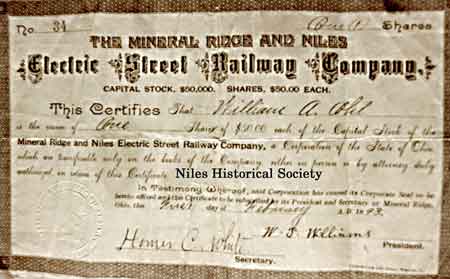 No 34 One Shares
THE MINERAL RIDGE AND NILES
Electric Street Railway Company.
CAPITAL STOCK, $50,000. SHARES, $50.00 EACH.
This Certifies That William A. Ohl
is the owner of One Share of $50.00 each of the Capital Stock of the
Mineral Ridge and Niles Electric Street Railway Company, a Corporation of the State of Ohio
which are transferable only on the books of the Company either in person or by attorney duly
authorized, on return of this Certificate.
Niles Historical Society
In Testimony Whereof, said Corporation has caused its Corporate Seal to be
hereto affixed and the Certificate to be subscribed by its President and Secretary at Mineral Ridge,
Ohio, this First day of February A.D. 1893.
Homer C. White W. J. Williams
Secretary. President.